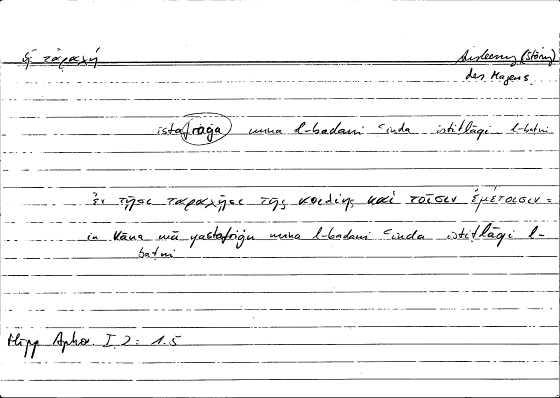 ἡ ταραχή (Störung)
des Magens
istafraġa mina l-badani ʿinda istiṭlāqi l-baṭni
ἐν τῇσι ταραχῇσι τῆς κοιλίης καὶ τοῖσιν ἐμέτοισιν =
in kāna mā yastafriġu mina l-badani ʿinda istiṭlāqi l-
baṭni
Hipp Apho. I 2: 1.5